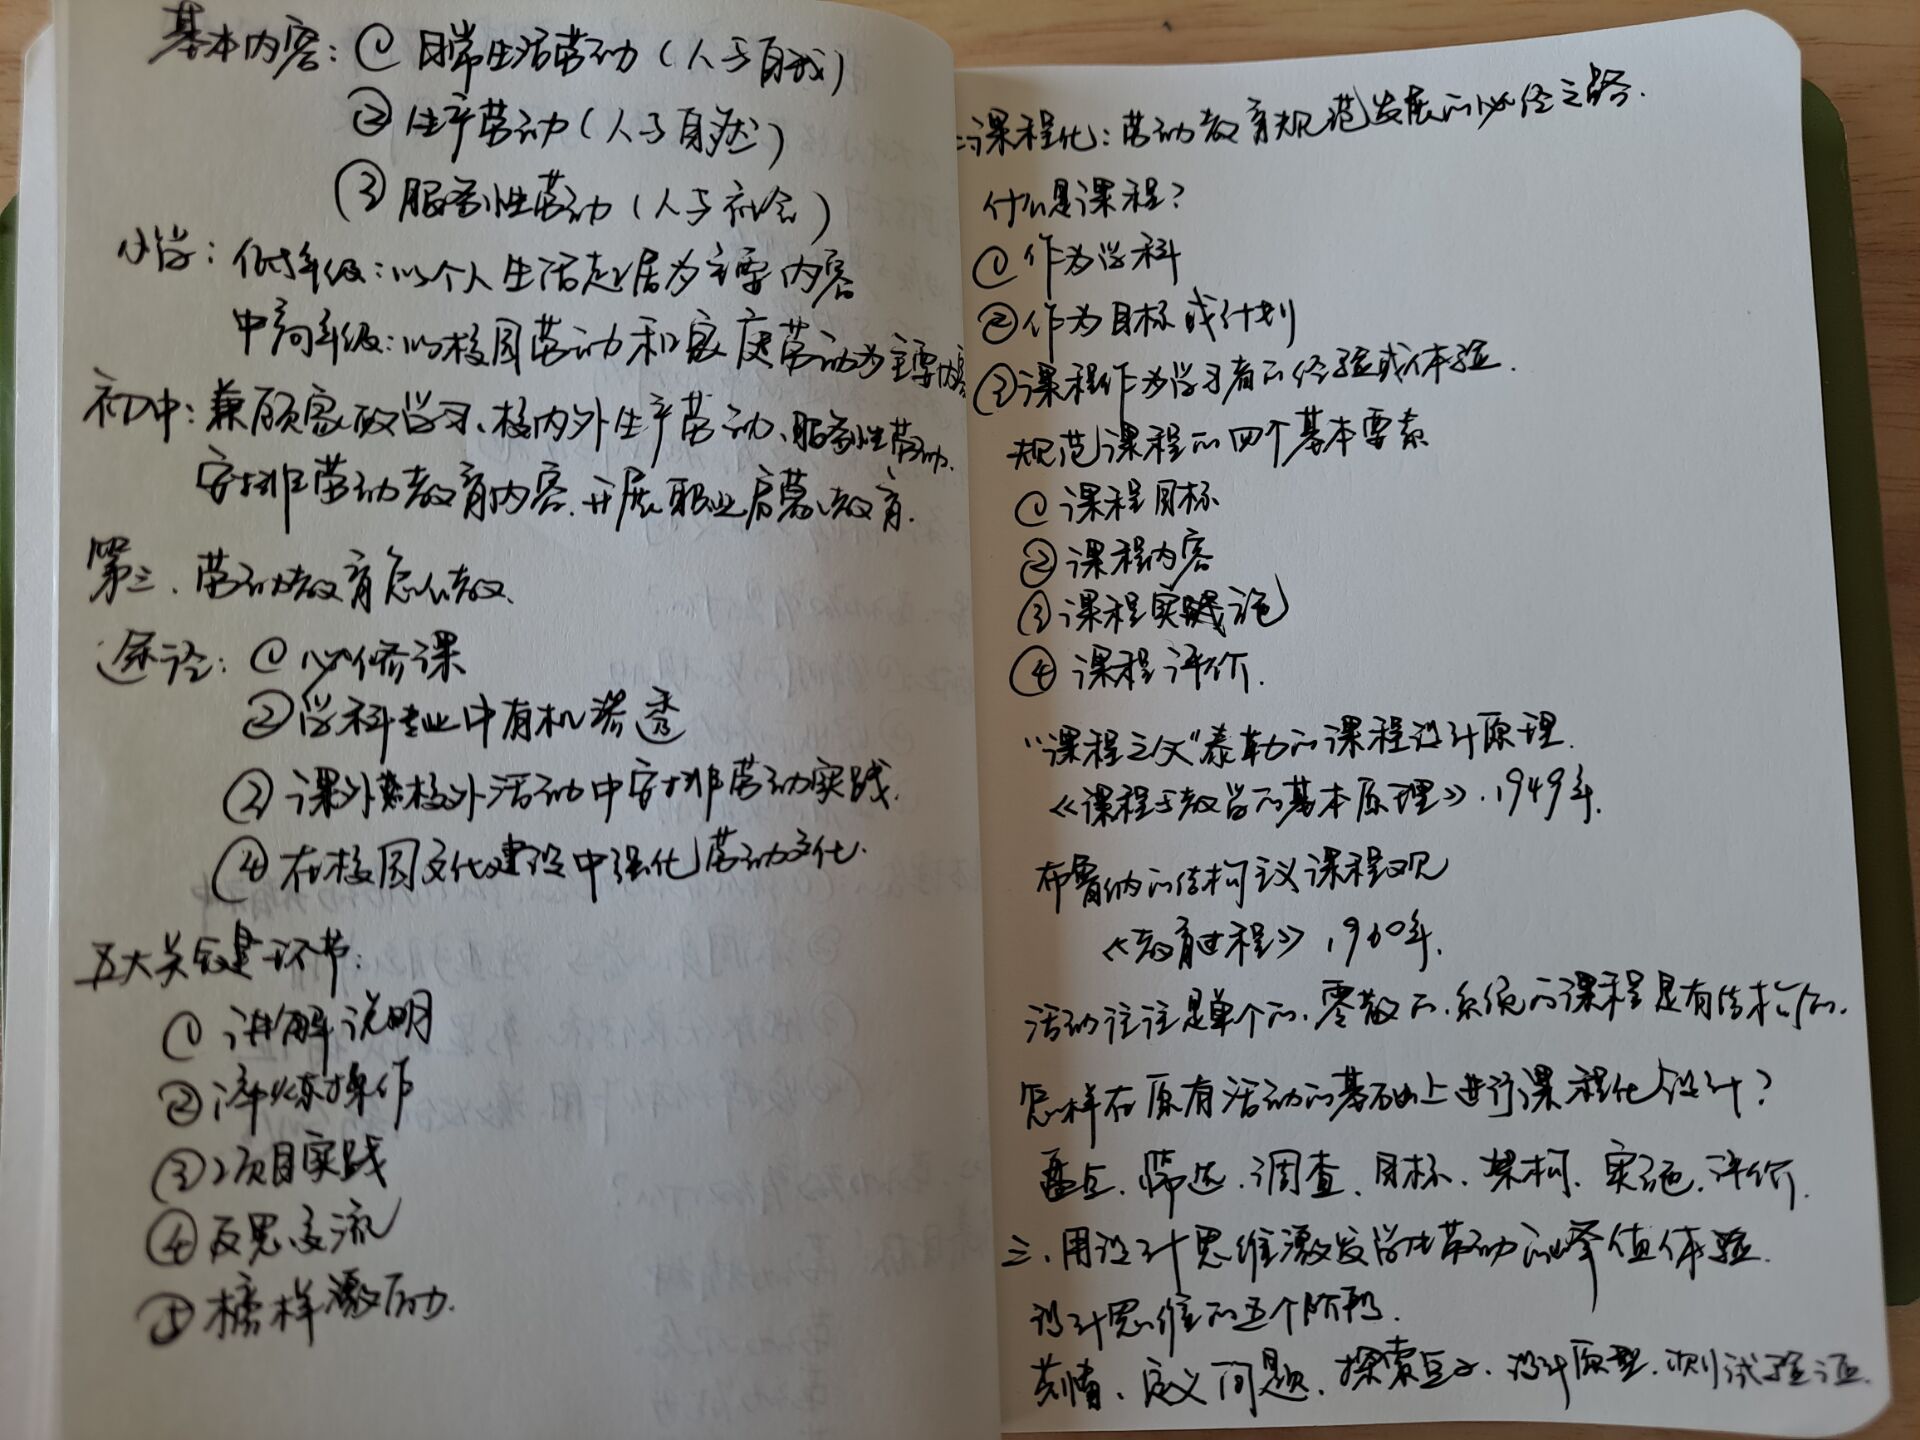 基本内容：① 日常生活劳动（人与自我）
② 生产劳动（人与自然）
③ 服务性劳动（人与社会）
小学：低年级：以个人生活起居为主要内容
中高年级：以校园劳动和家庭劳动为主要内容
初中：兼顾家政学习、校内外生产劳动、服务性劳动，
安排劳动教育内容，开展职业启蒙教育．
第三、劳动教育怎么教．
途径：① 必修课
② 学科专业中有机渗透
③ 课外校外活动中安排劳动实践．
④ 在校园文化建设中强化劳动文化．
五大关键环节：
① 讲解说明
② 淬炼操作
③ 项目实践
④ 反思交流
⑤ 榜样激励．
二、课程化：劳动教育规范发展的必经之路．
什么是课程？
① 作为学科
② 作为目标或计划
③ 课程作为学习者的经验或体验．
规范课程的四个基本要素
① 课程目标
② 课程内容
③ 课程实施
④ 课程评价．
“课程之父”泰勒的课程设计原理．
《课程与教学的基本原理》．1949年．
布鲁纳的结构主义课程观
《教育过程》，1960年．
活动往往是单个的、零散的、系统的课程是有结构的．
怎样在原有活动的基础上进行课程化设计？
盘点、筛选、调查、目标、架构、实施、评价．
三、用设计思维激发学生劳动的峰值体验．
设计思维的五个阶段．
共情、定义问题、探索点子、设计原型、测试验证．